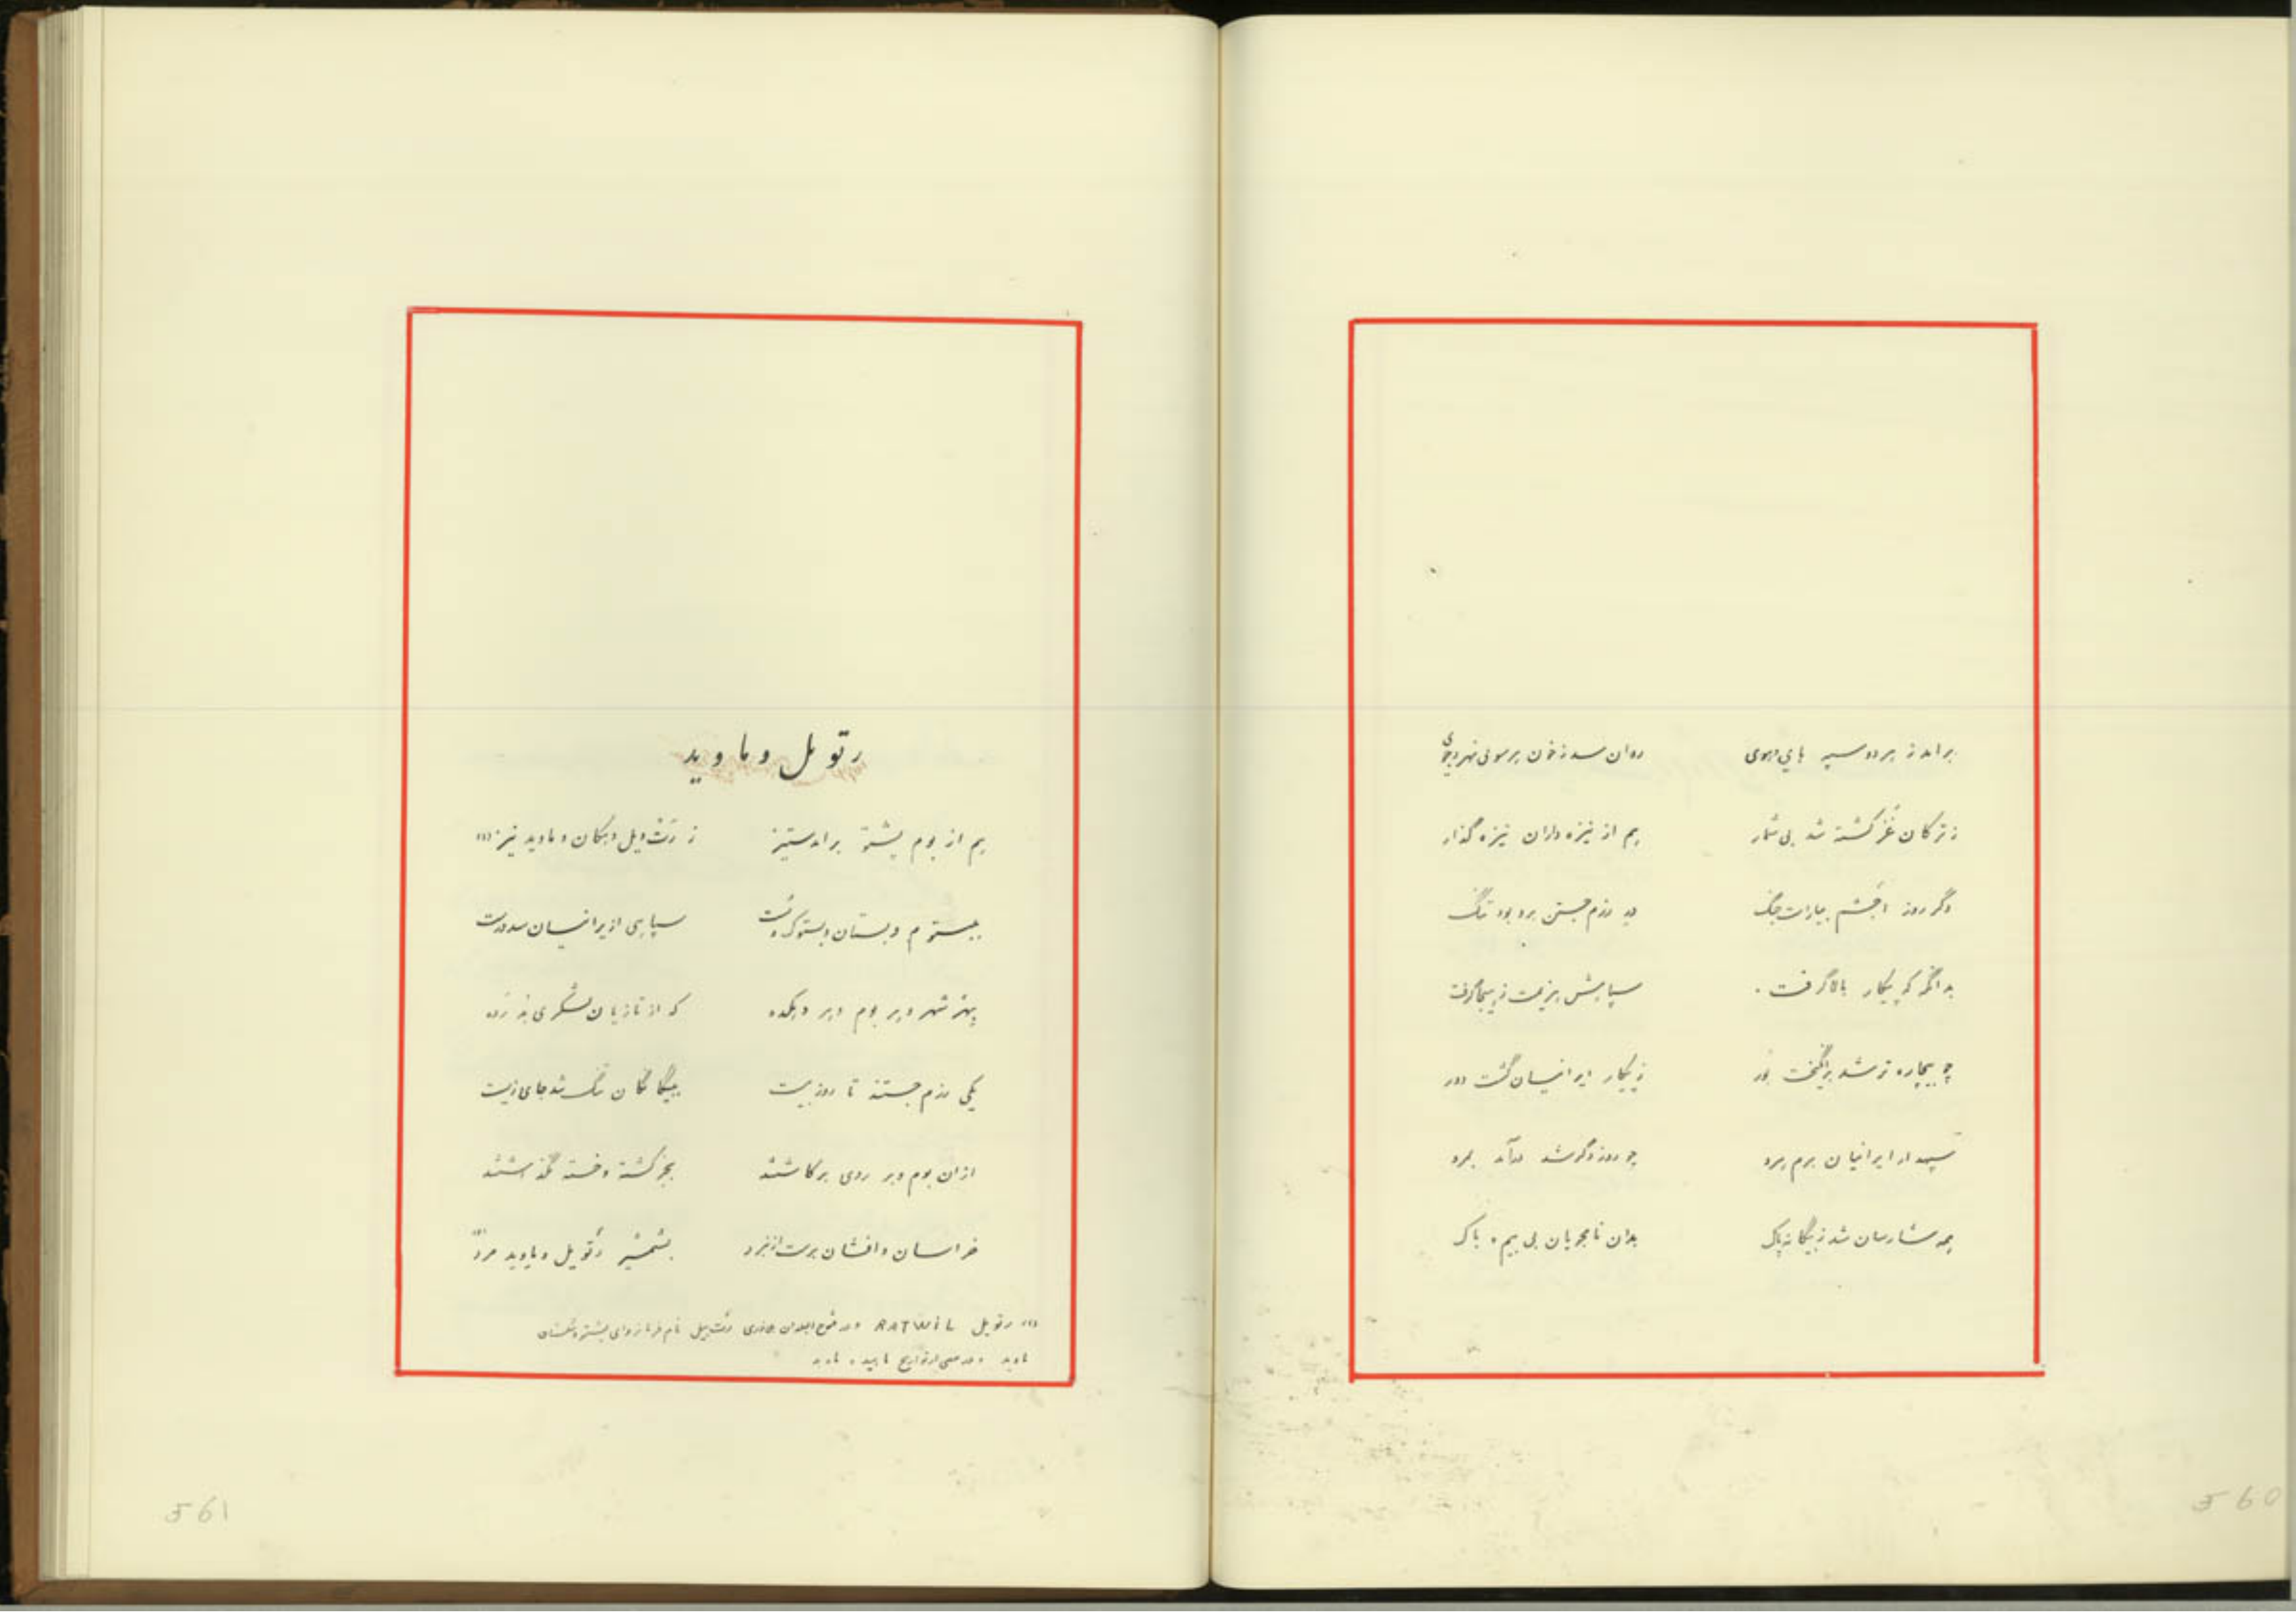 برآمد ز هر دو سپه های و هوی روان شد ز خون هر سوئی نهر و جوی
ز ترکان غز کشته شد بی شمار هم از نیزه داران نیزه گذار
دگر روز اخشم بیاراست جنگ در رزم جستن برو بود تنگ
بدانگه که پیکار بالا گرفت سپاهش هزیمت ز هیجا گرفت
چو بیچاره تر شد برانگیخت بور ز پیکار ایرانیان گشت دور
سپهدار ایرانیان برم برد چو روز دگر شد درآمد بمرد
همه شارسان شد ز بیگانه پاک بدان نامجویان بی بیم و باک
560
رتویل و ماوید
هم از بوم پشتو برآمد ستیز ز رتویل دهگان و ماوید نیز (۱)
ببستوم و بستان و بست سپاهی از ایرانیان
بهر شهر و هر بوم و هر دهکده که از تازیان لشکری بد زده
یکی رزم جستند تا روز بیست به بیگانگان تنگ شد جای زیست
از آن بوم و بر روی برگاشتند بجز کشته و خسته نگذاشتند
خراسان و افشان برست از نبرد بشمشیر رتویل و ماوید مرد
(۱) رتویل RATWiL و در فتوح البلدان بلاذری رتبیل نام فرمانروای پشتو
ماوید و در بعضی از تواریخ
561